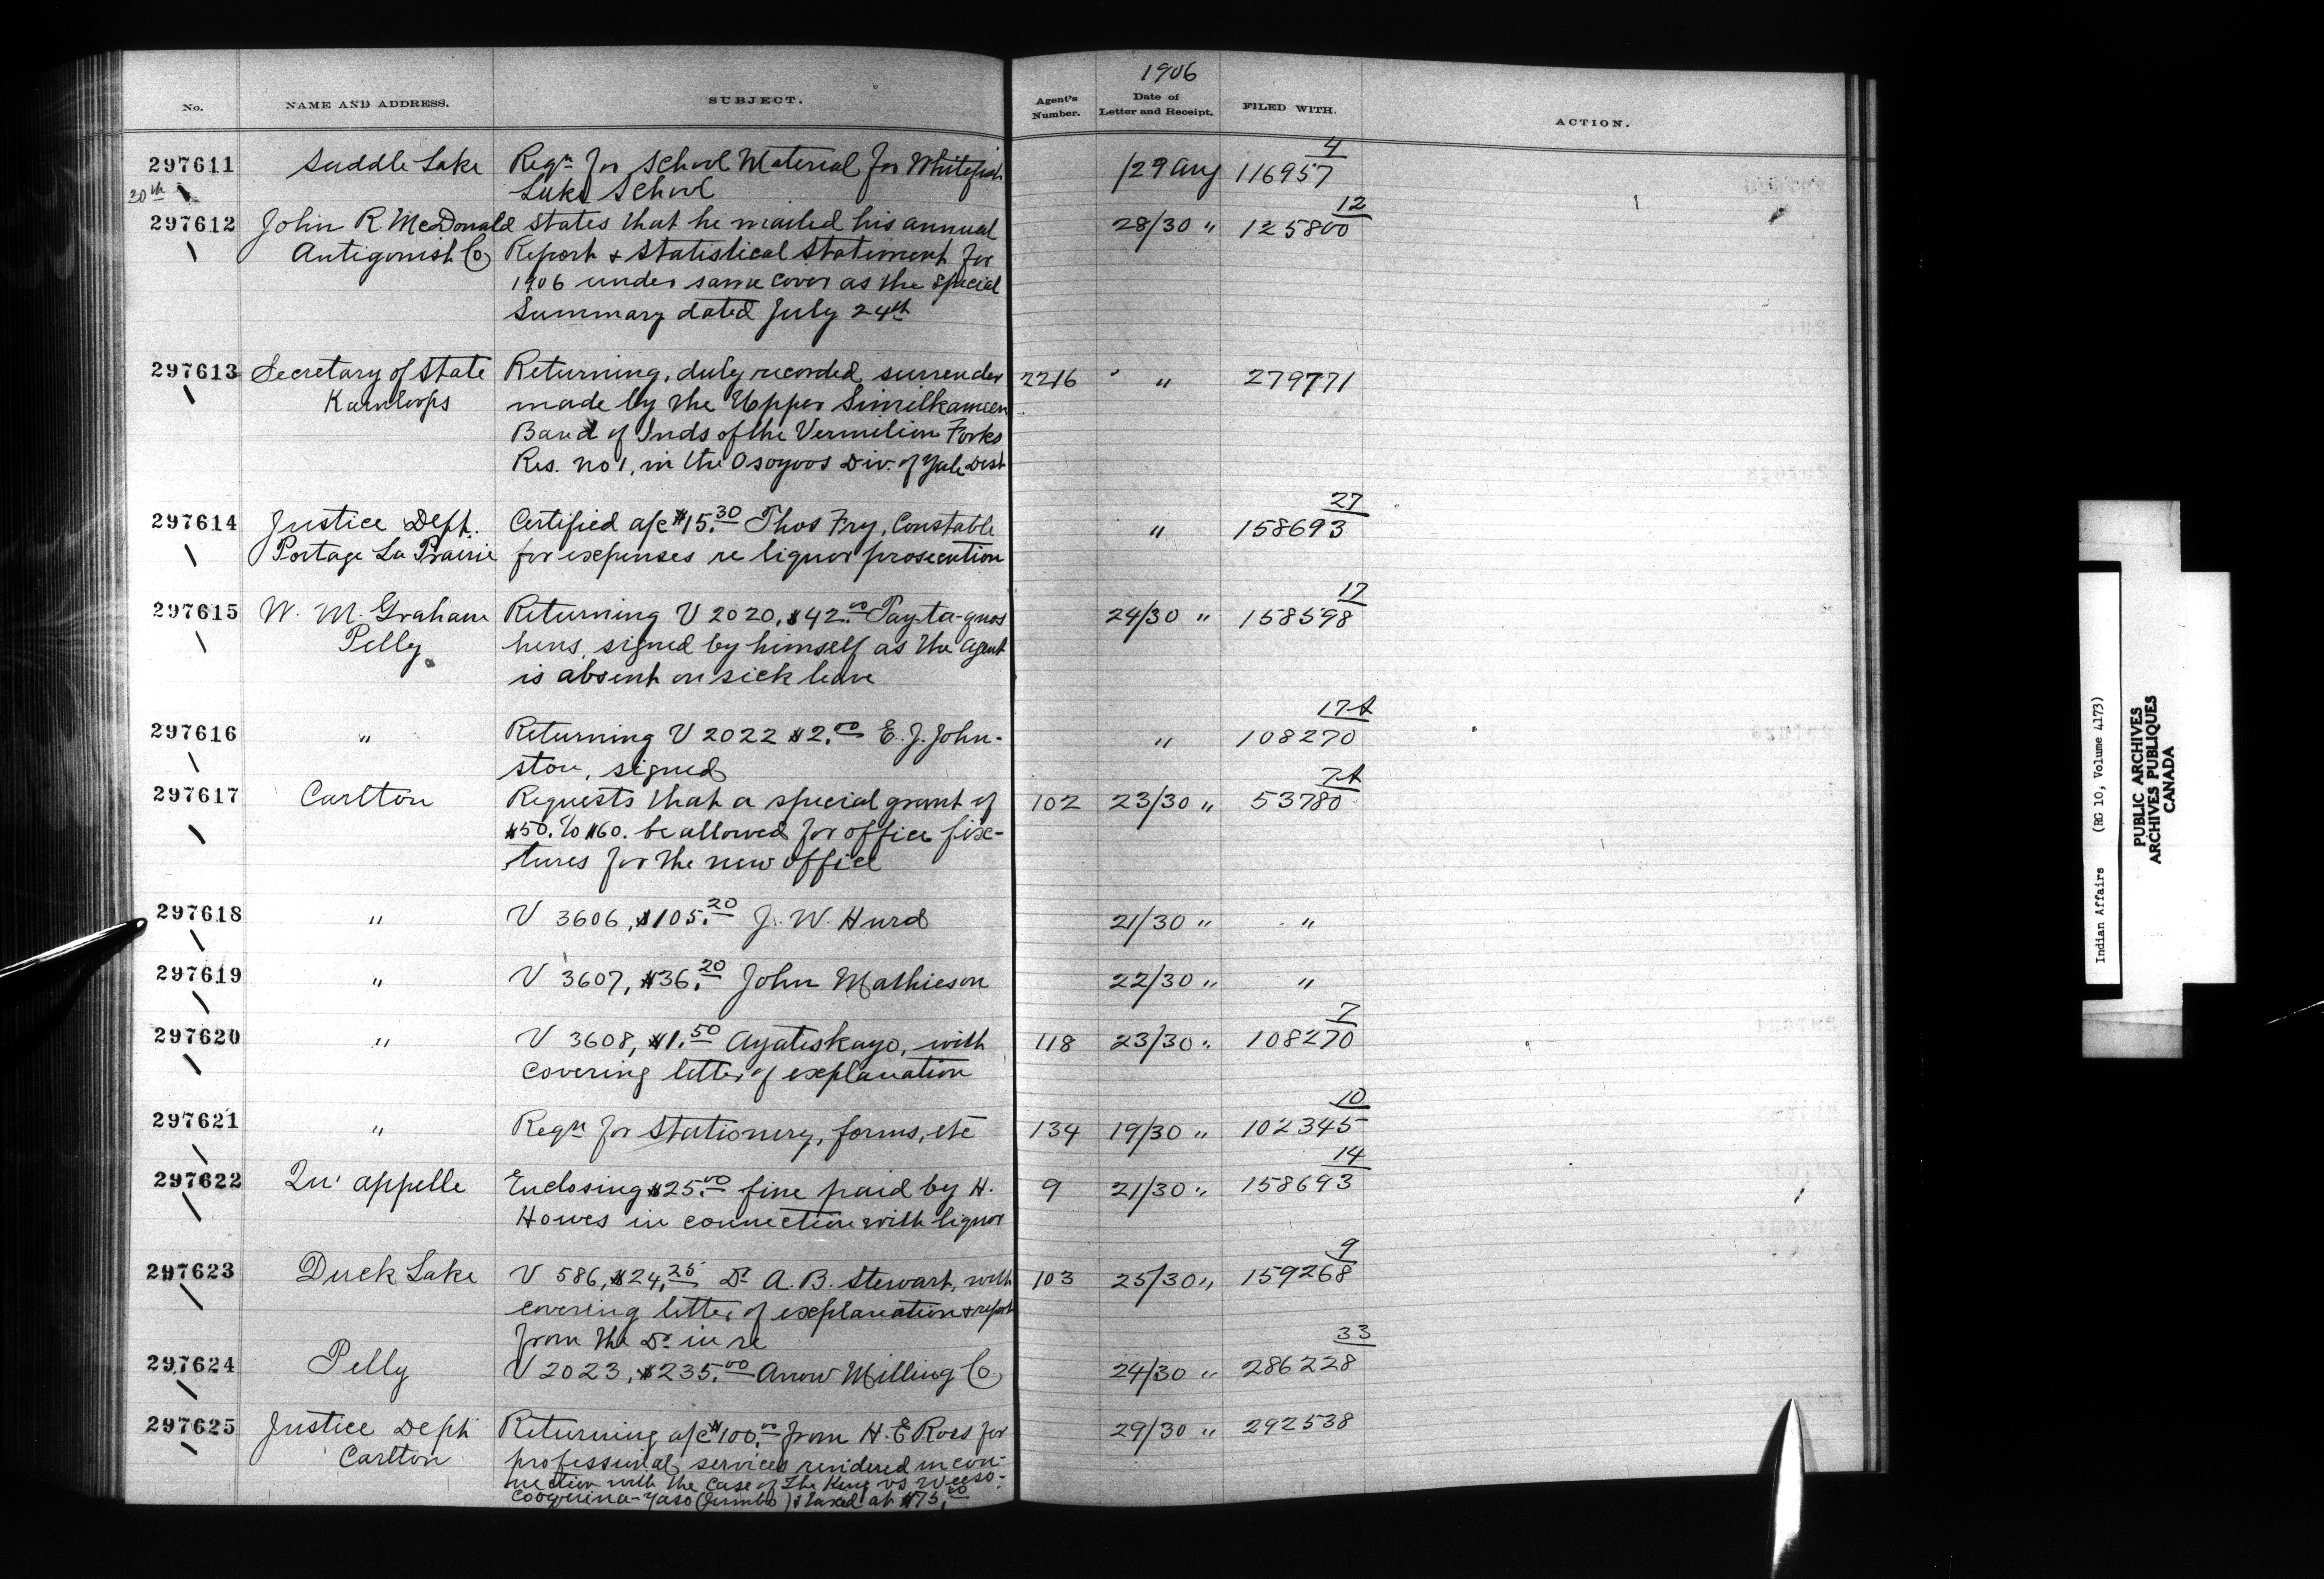 1906
No. NAME AND ADDRESS. SUBJECT. Agent's Number. Date of Letter and Receipt. FILED WITH. ACTION.
297611 Saddle Lake Reqn for School Material for Whitefish /29 Aug 4 116957
30th Lake School
297612 John R. McDonald states that he mailed his annual 28/30 " 12 125800
Antigonish Co Report & Statistical Statement for
1906 under same cover as the special
Summary dated July 24th
297613 Secretary of State Returning, duly recorded surrender 2216 " 279771
Kamloops made by the Upper Similkameen
Band of Inds of the Vermilion Forks
Res. no 1, in the Osoyoos Div. of Yale Dist
297614 Justice Dept. Certified a/c $15.30 Thos Fry, Constable " 27 158693
Portage La Prairie for expenses re liquor prosecution
297615 W. M. Graham Returning V 2020, $42.00 Pay-ta-quos 24/30 " 17 158598
Pelly hens, signed by himself as the Agent
is absent on sick leave
297616 " Returning V 2022 $2.00 E. J. John- " 17-A 108270
ston, signed
297617 Carlton Requests that a special grant of 102 23/30 " 7-A 53780
$50. to $60. be allowed for office fix-
tures for the new office
297618 " V 3606, $105.20 J. W. Hurd 21/30 " "
297619 " V 3607, $36.20 John Mathieson 22/30 " "
297620 " V 3608, $1.50 Ayatiskayo, with 118 23/30 " 7 108270
covering letter of explanation
297621 " Reqn for Stationery, forms, etc 134 19/30 " 10 102345
297622 Qu'appelle Enclosing $25.00 fine paid by H. 9 21/30 " 14 158693
Howes in connection with liquor
297623 Duck Lake V 586, $24.25 Dr A. B. Stewart, with 103 25/30 " 9 159268
covering letter of explanation & report
from the Dr in re
297624 Pelly V 2023, $235.00 Arrow Milling Co 24/30 " 33 286228
297625 Justice Dept Returning a/c $100.00 from H. E. Ross for 29/30 " 292538
Carlton professional services rendered in con-
nection with the case of The King vs
(Jumbo) & taxed at $75.00
Indian Affairs (RG 10, Volume 4173)
PUBLIC ARCHIVES
ARCHIVES PUBLIQUES
CANADA